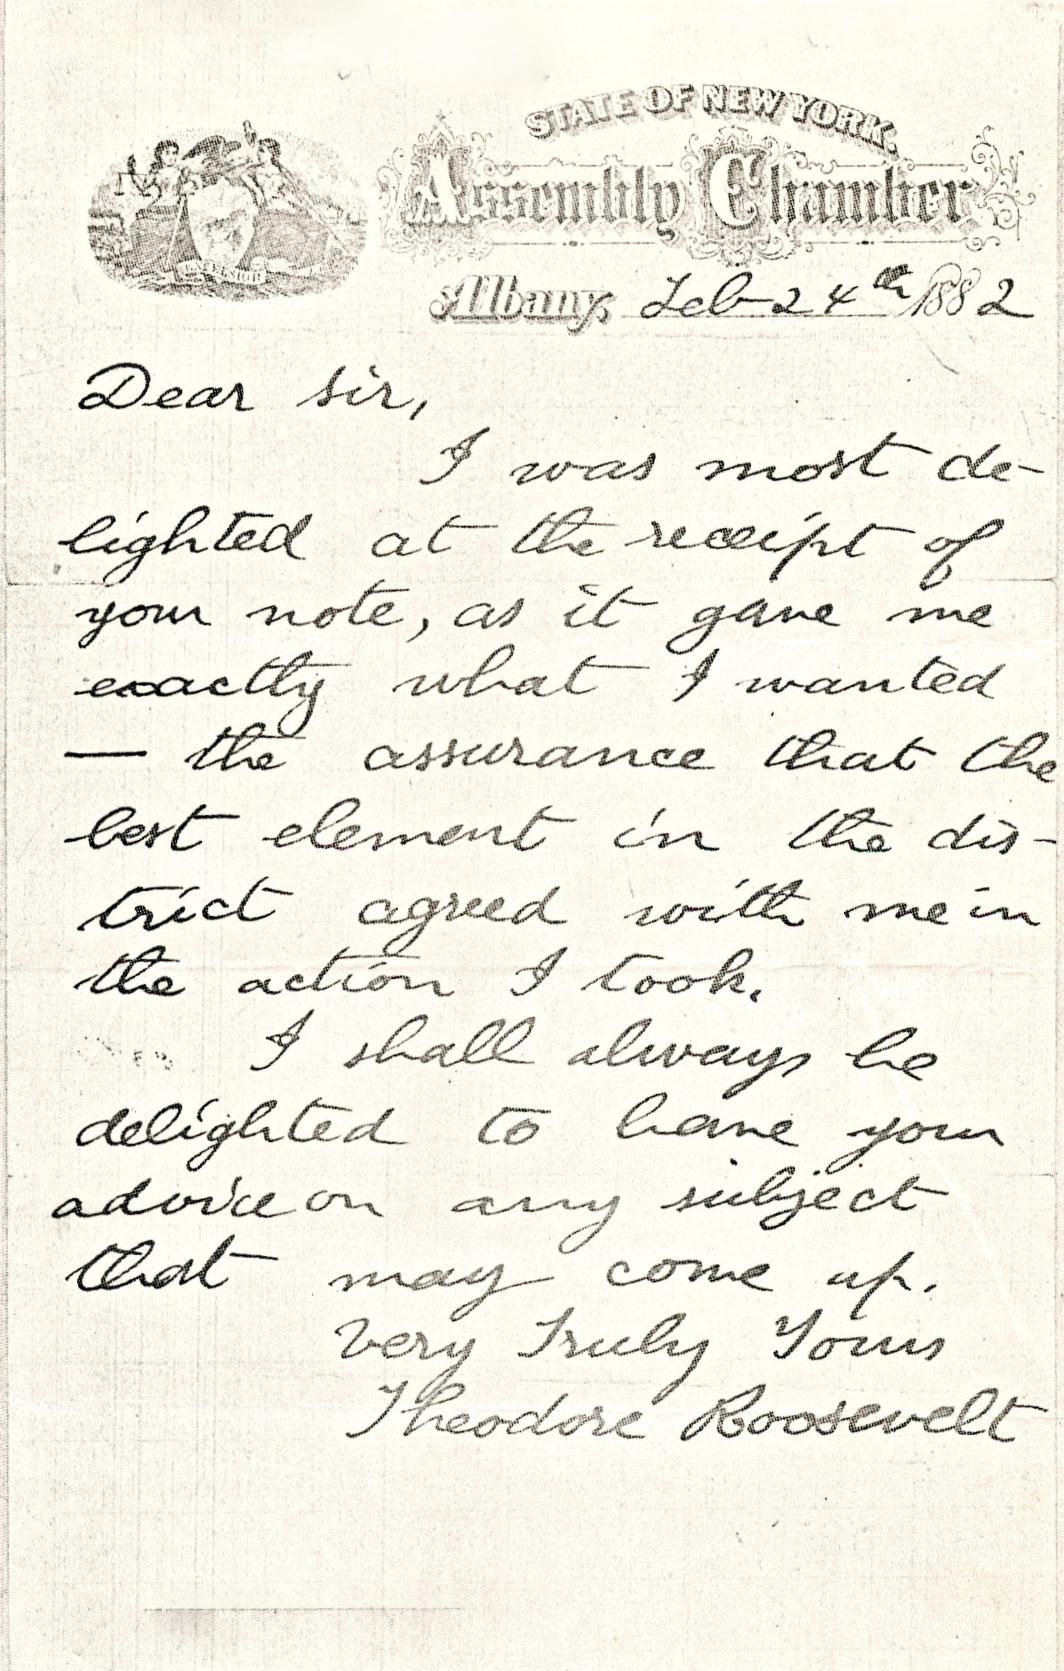 STATE OF NEW YORK.
Assembly Chamber
EXCELSIOR
Albany, Feb 24th 1882
Dear Sir,
I was most de-
lighted at the receipt of
your note, as it gave me
exactly what I wanted
— the assurance that the
best element in the dis-
trict agreed with me in
the action I took.
I shall always be
delighted to have your
advice on any subject
that may come up.
Very Truly Yours
Theodore Roosevelt